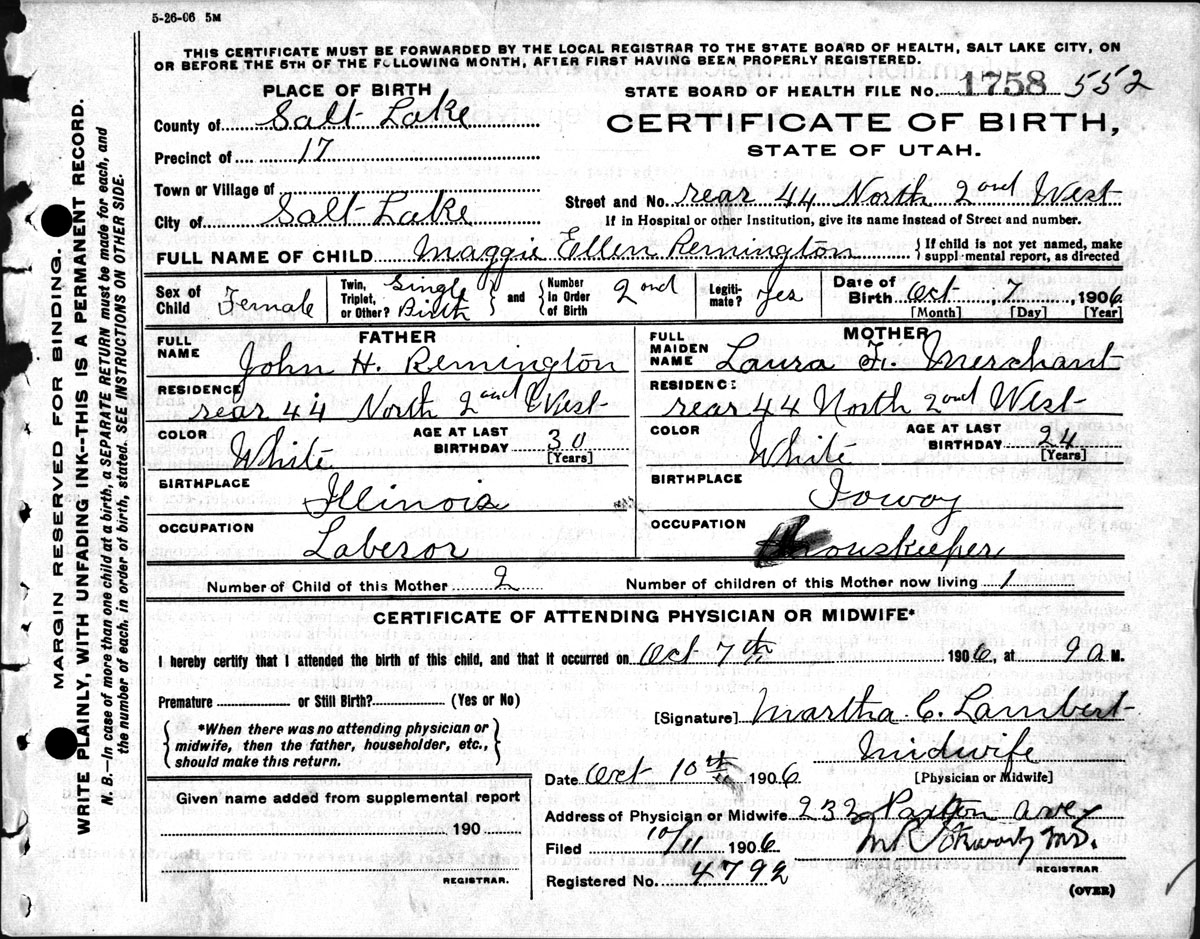 5-26-06 5M
THIS CERTIFICATE MUST BE FORWARDED BY THE LOCAL REGISTRAR TO THE STATE BOARD OF HEALTH, SALT LAKE CITY, ON
OR BEFORE THE 5TH OF THE FOLLOWING MONTH, AFTER FIRST HAVING BEEN PROPERLY REGISTERED.
PLACE OF BIRTH
STATE BOARD OF HEALTH FILE NO. 1758 552
County of Salt Lake
CERTIFICATE OF BIRTH,
STATE OF UTAH.
Precinct of 17
Town or Village of
Street and No. rear 44 North 2nd West
City of Salt Lake
If in Hospital or other Institution, give its name instead of Street and number.
FULL NAME OF CHILD Maggie Ellen Remington { If child is not yet named, make
supplemental report, as directed
Sex of Child Female
Twin, Triplet, or Other? Single Birth } and { Number in Order of Birth 2nd
Legitimate? Yes
Date of Birth Oct, 7, 1906
[Month] [Day] [Year]
FATHER
FULL NAME John H. Remington
RESIDENCE
rear 44 North 2nd West
COLOR White
AGE AT LAST BIRTHDAY 30
[Years]
BIRTHPLACE
Illinois
OCCUPATION
Laberor
MOTHER
FULL MAIDEN NAME Laura F. Merchant
RESIDENCE
rear 44 North 2nd West
COLOR White
AGE AT LAST BIRTHDAY 24
[Years]
BIRTHPLACE
Ioway
OCCUPATION
houskeeper
Number of Child of this Mother 2
Number of children of this Mother now living 1
CERTIFICATE OF ATTENDING PHYSICIAN OR MIDWIFE*
I hereby certify that I attended the birth of this child, and that it occurred on Oct 7th 1906, at 9 A M.
Premature or Still Birth? (Yes or No)
[Signature] Martha C. Lambert
{ *When there was no attending physician or
midwife, then the father, householder, etc.,
should make this return. }
Midwife
Date Oct 10th 1906
[Physician or Midwife]
Given name added from supplemental report
190
REGISTRAR.
Address of Physician or Midwife 232 Paxton ave
Filed 10/11 1906
M.D.
REGISTRAR
Registered No. 4792
(OVER)
MARGIN RESERVED FOR BINDING.
WRITE PLAINLY, WITH UNFADING INK--THIS IS A PERMANENT RECORD.
N. B.—In case of more than one child at a birth, a SEPARATE RETURN must be made for each, and
the number of each, in order of birth, stated. SEE INSTRUCTIONS ON OTHER SIDE.